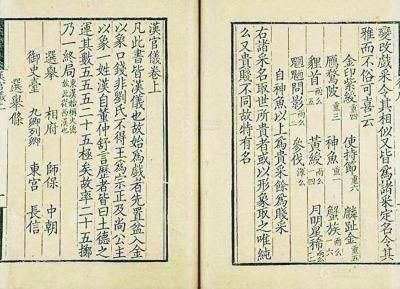 變改戲采令其相似又皆為諸采定名令其
雅而不俗可喜云
金印紫綬 使持節 麟趾金
神魚 蟹族
貍首 黃綬 月明星稀
魍魎問影 參伐
自神魚以上為貴采餘為賤采
右諸采名取世所貴者或以形象取之唯純
么又貴賤不同故特有名
漢官儀卷上
凡此書皆漢儀也故始為戲者先置盆入金
以象口錢非劉氏不得王為宗正及尚公主
以象一姓漢自董仲舒言歷者皆曰土德之
運其數五五五二十五極矣故率二十五擲
乃一終局
選舉 相府 師保 中朝
御史臺 九卿列卿 東宮 長信
選舉條